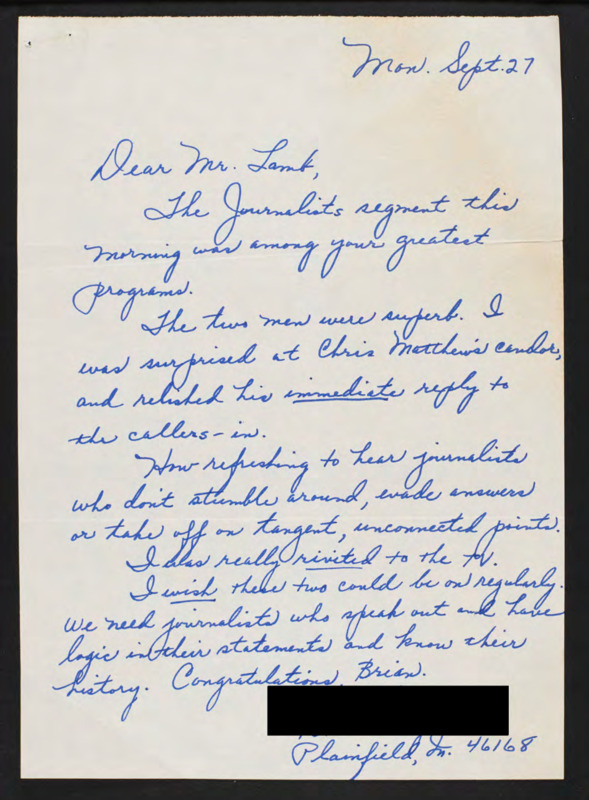 Mon. Sept. 27
Dear Mr. Lamb,
The Journalists segment this
morning was among your greatest
programs.
The two men were superb. I
was surprised at Chris Matthew's candor,
and relished his immediate reply to
the callers-in.
How refreshing to hear journalists
who don't stumble around, evade answers
or take off on tangent, unconnected points.
I was really rivited to the tv.
I wish these two could be on regularly.
We need journalists who speak out and have
logic in their statements and know their
history. Congratulations, Brian.
Plainfield, In. 46168